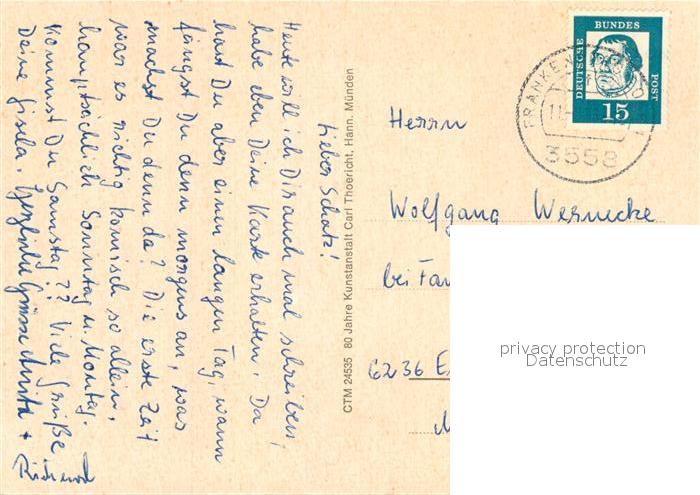 Lieber Schatz!
Heute will ich Dir auch mal schreiben,
habe eben Deine Karte erhalten. Da
hast Du aber einen langen Tag, wann
fängst Du denn morgens an, was
machst Du denn da? Die erste Zeit
war es richtig komisch so allein,
hauptsächlich Sonntag u. Montag.
Kommst Du Samstag?? Viele Grüße
Deine Gisela. Herzliche Grüsse Anita +
CTM 24535 80 Jahre Kunstanstalt Carl Thoericht, Hann. Münden
DEUTSCHE BUNDES POST
15
FRANKEN
3558
Herrn
Wolfgang Wernecke
bei Fam
6236 E
privacy protection
Datenschutz